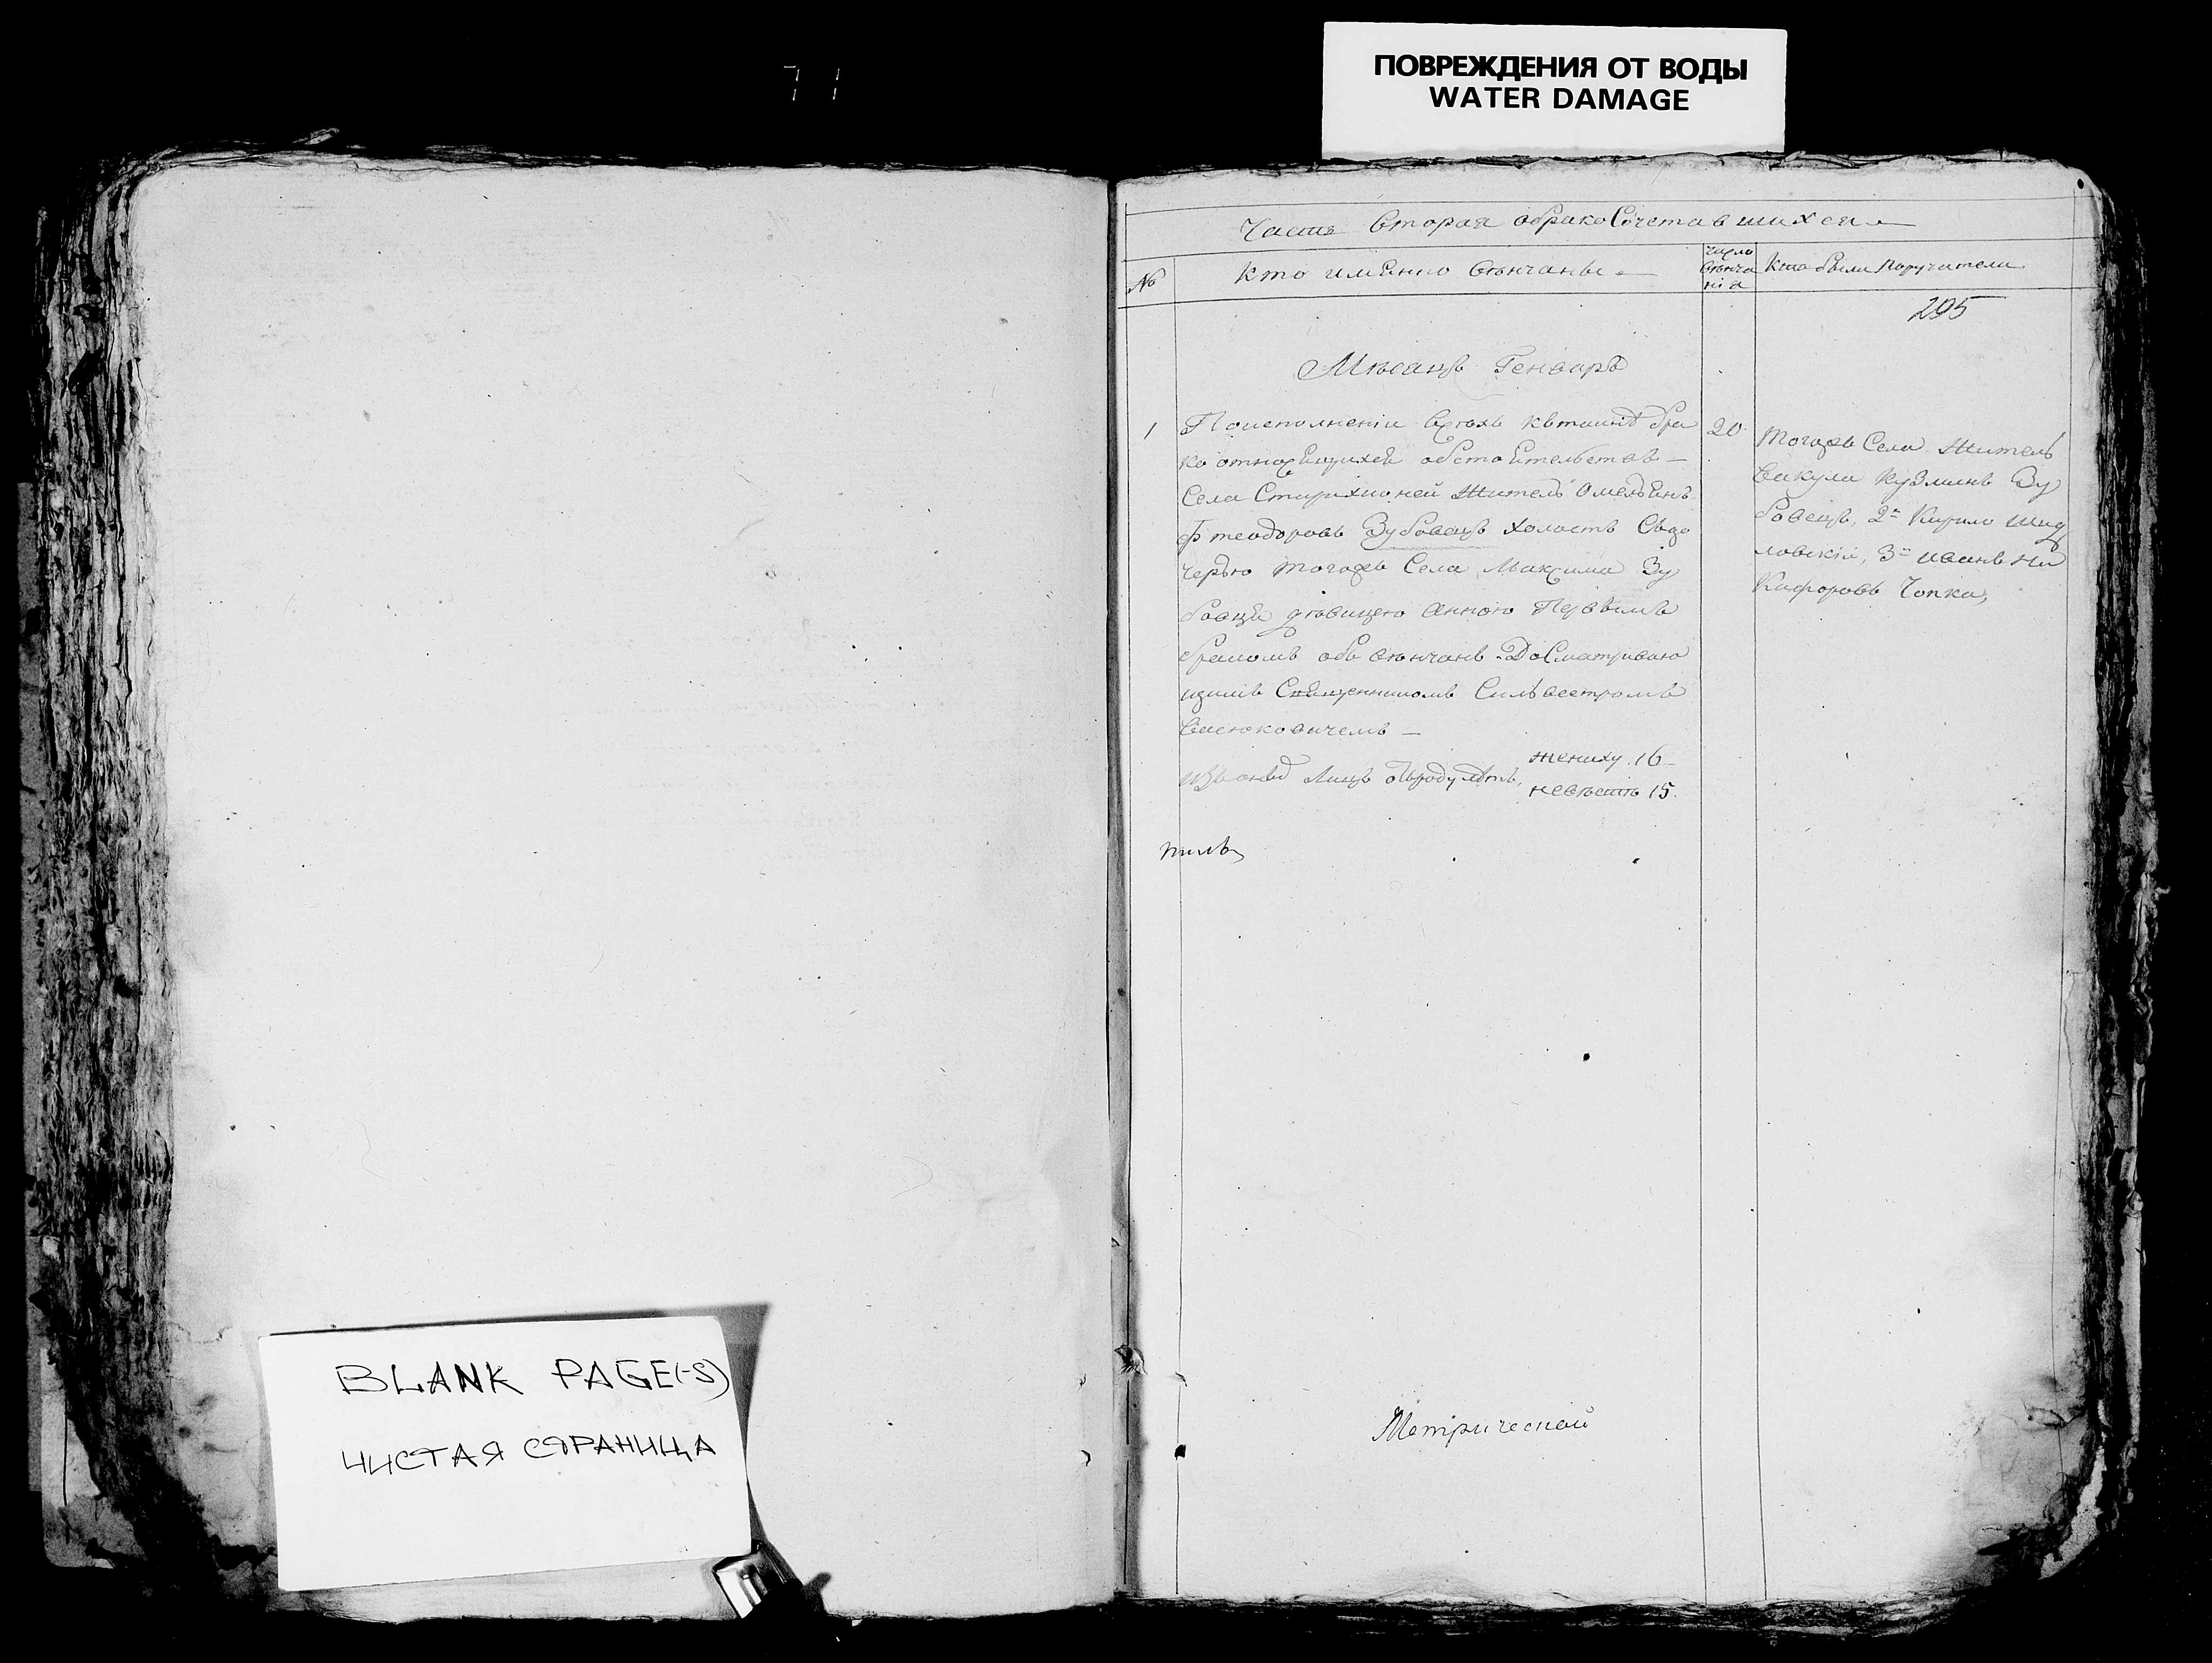 71
ПОВРЕЖДЕНИЯ ОТ ВОДЫ
WATER DAMAGE
Часть Вторая обракоСочетавшихся
№
Кто имЕнно вѣнчаны
Число
вѣнча
нія
Кто были Поручители
295
Мѣсяцъ Генварь
1
По исполненіи всѣхъ къ таинѣ бра
ка относЕщихсЕ обстоЕтельствъ
Села жителъ ОмелЕнъ
Ѳтеодоровъ Зубовецъ холостъ Съдо
черью тогожъ Села Максима Зу
бовца дѣвицею Анною Первымъ
бракомъ обвѣнчанъ Досматриваю
щимъ СвЕщенникомъ Силъвестромъ
Васюковичемъ
Лицъ отроду лѣтъ,
жениху 16
невѣстѣ 15.
20
тогожъ Села Житель
Вакула Кузминъ Зу
бовецъ, 2й Кирило Шид
ловскій, 3й иванъ Ни
Кифоровъ Чопка,
Метрической
BLANK PAGE(-S)
ЧИСТАЯ СТРАНИЦА